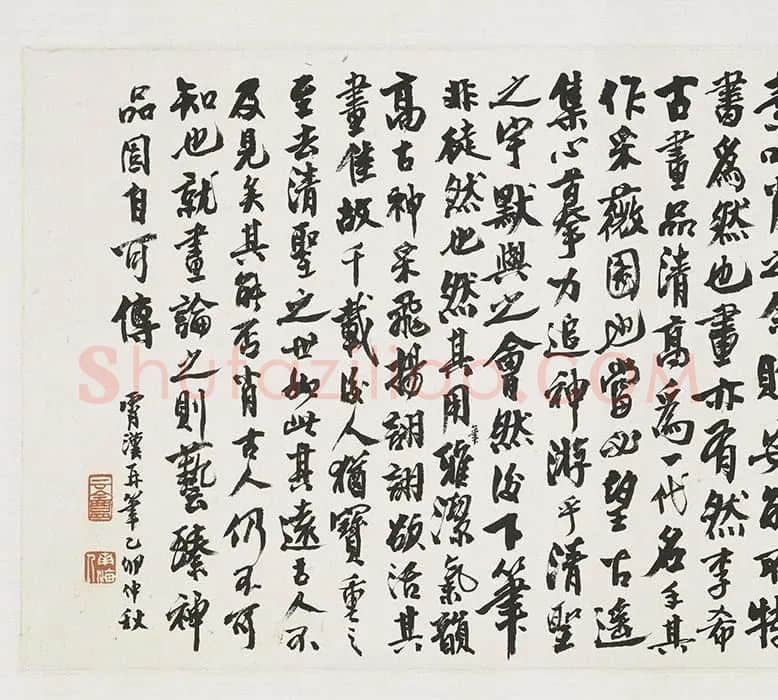 書為然也畫亦有然李希
古畫品清高為一代名手其
作采薇圖也當必望古遙
集心摹力追神游乎清聖
之宇默與之會然後下筆
非徒然也然其用筆雅潔氣韻
高古神采飛揚詡詡欲活其
畫佳故千載後人猶寶重之
至去清聖之世如此其遠古人不
及見矣其能否肖古人仍不可
知也就畫論之則藝臻神
品固自可傳
霄漢再筆乙卯仲秋
Shufaziliao.COM